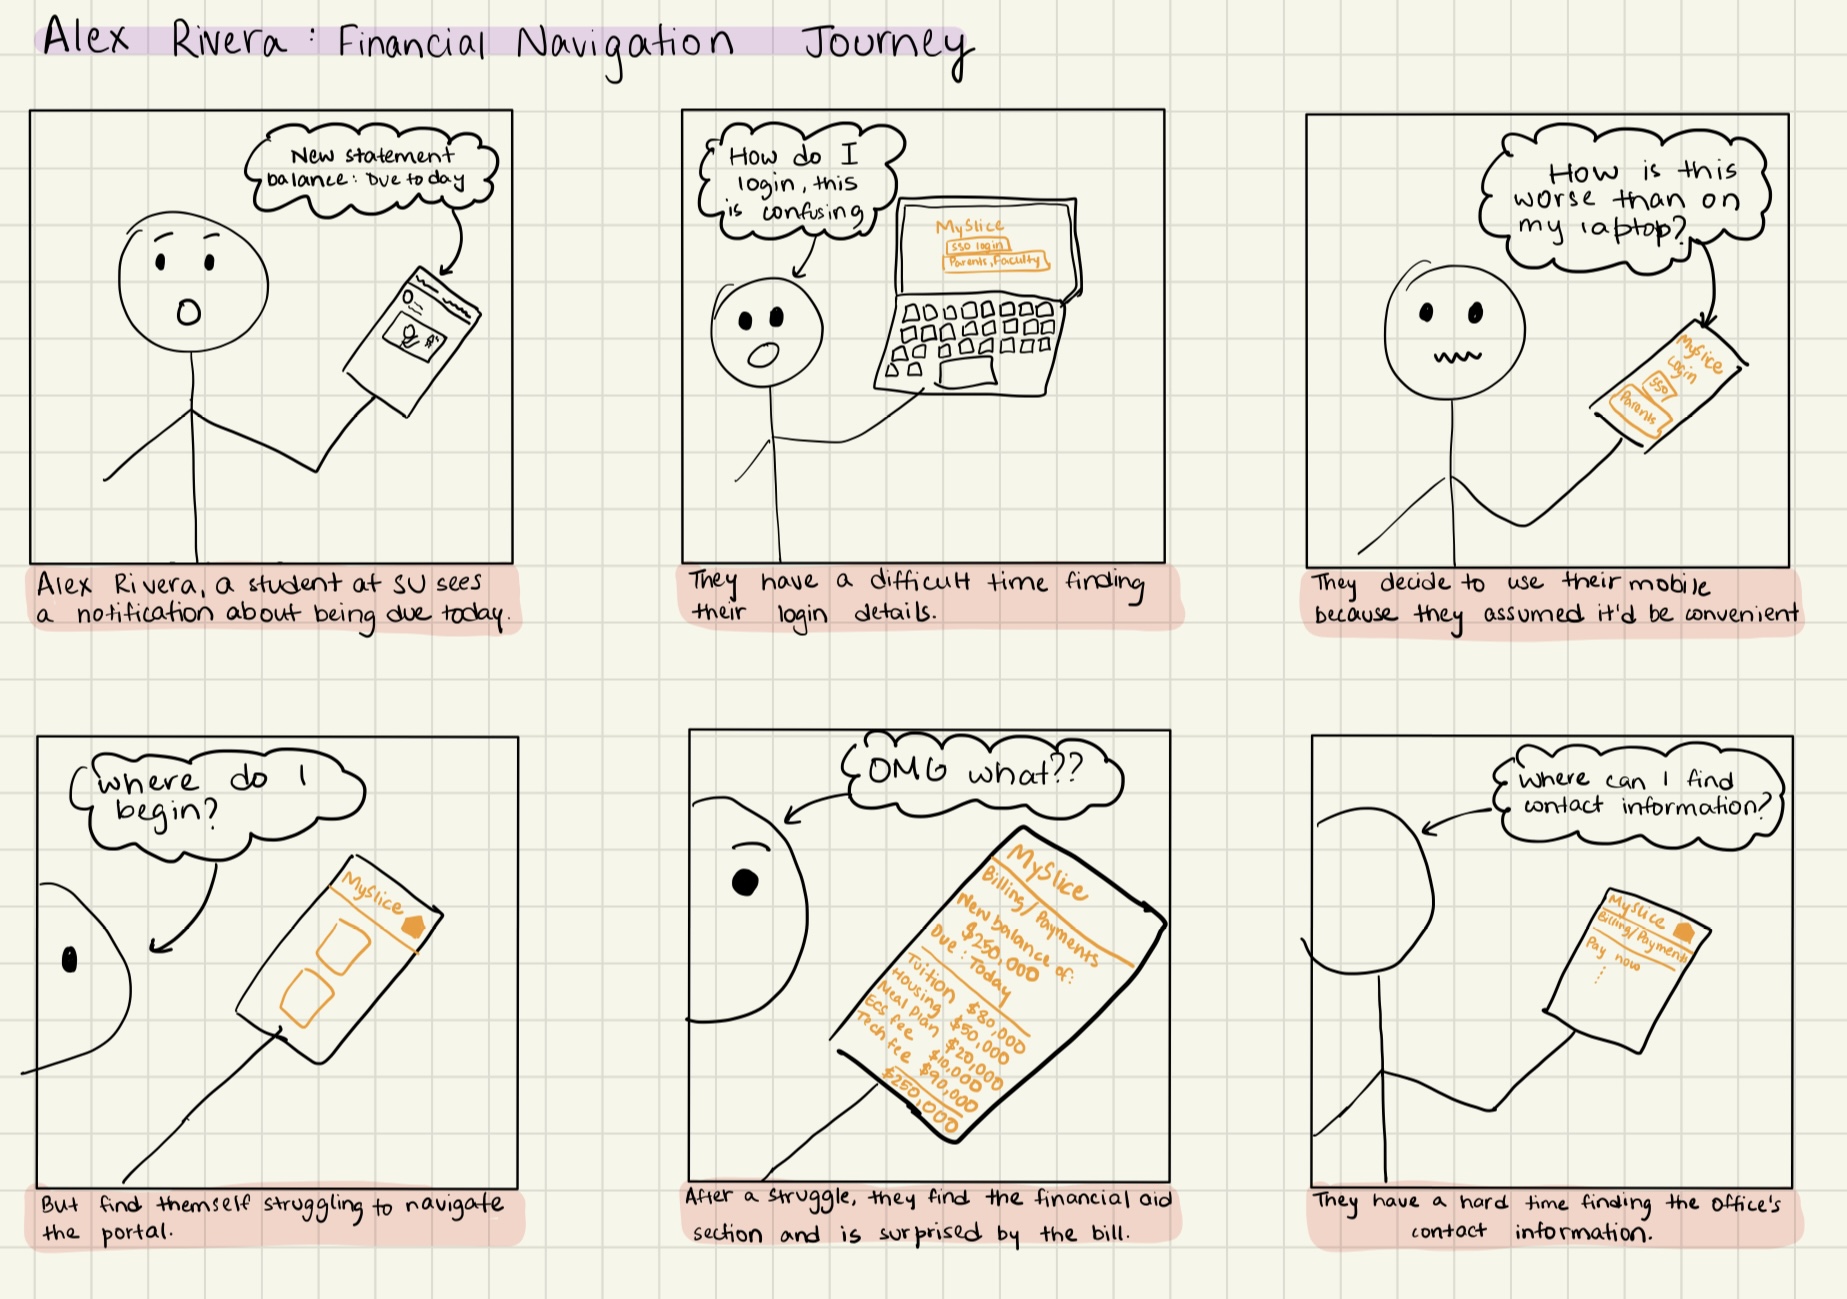 Alex Rivera: Financial Navigation Journey
New statement
balance: Due today
Alex Rivera, a student at SU sees
a notification about being due today.
How do I
login, this
is confusing
MySlice
SSO login
Parents, Faculty
They have a difficult time finding
their login details.
How is this
worse than on
my laptop?
MySlice
Login
SSO
Parents
They decide to use their mobile
because they assumed it'd be convenient
where do I
begin?
MySlice
But find themself struggling to navigate
the portal.
OMG what??
MySlice
Billing/Payments
New balance of:
$250,000
Due: Today
Tuition $80,000
Housing $50,000
Meal plan $20,000
ECS fee $10,000
Tech fee $90,000
$250,000
After a struggle, they find the financial aid
section and is surprised by the bill.
Where can I find
contact information?
MySlice
Billing/Payments
Pay now
They have a hard time finding the office's
contact information.